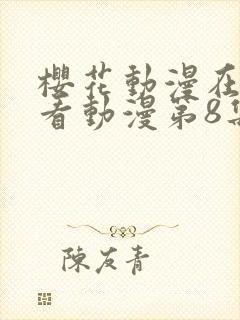 櫻花動漫在
看動漫第8集
陳友青